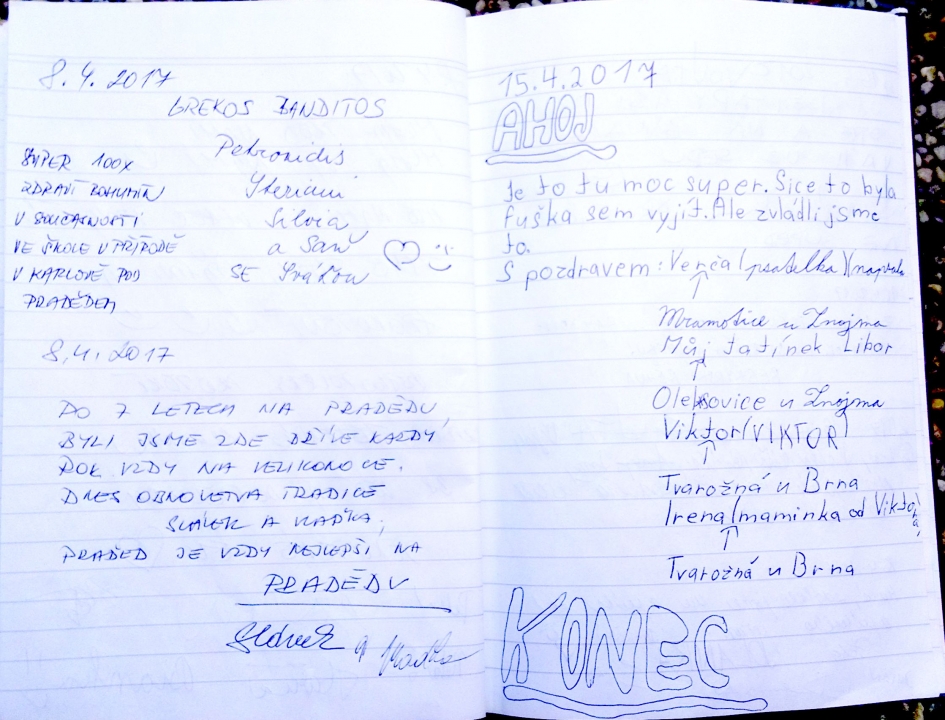 8.4.2017
GREKOS BANDITOS
SUPER 100X
ZDRAVÍ BOHUMÍN
V SOUČASNOSTI
VE ŠKOLE V PŘÍRODĚ
V KARLOVĚ POD
PRADĚDEM
Petronidis
Steriani
Silvia
a Saň
SE
8.4.2017
PO 7 LETECH NA PRADĚDU,
BYLI JSME ZDE DŘÍVE KAŽDÝ
ROK VŽDY NA VELIKONOCE.
DNES OBNOVENA TRADICE
SLÁVEK A VLAĎKA,
PRADĚD JE VŽDY NEJLEPŠÍ NA
PRADĚDU
Slávek a Vlaďka
15.4.2017
AHOJ
Je to tu moc super. Sice to byla
fuška sem vyjít. Ale zvládli jsme
to.
S pozdravem: Verča (psatelka)
Mramotice u Znojma
Můj tatínek Libor
Oleksovice u Znojma
Viktor (VIKTOR)
Tvarožná u Brna
Irena (maminka od Viktora)
Tvarožná u Brna
KONEC